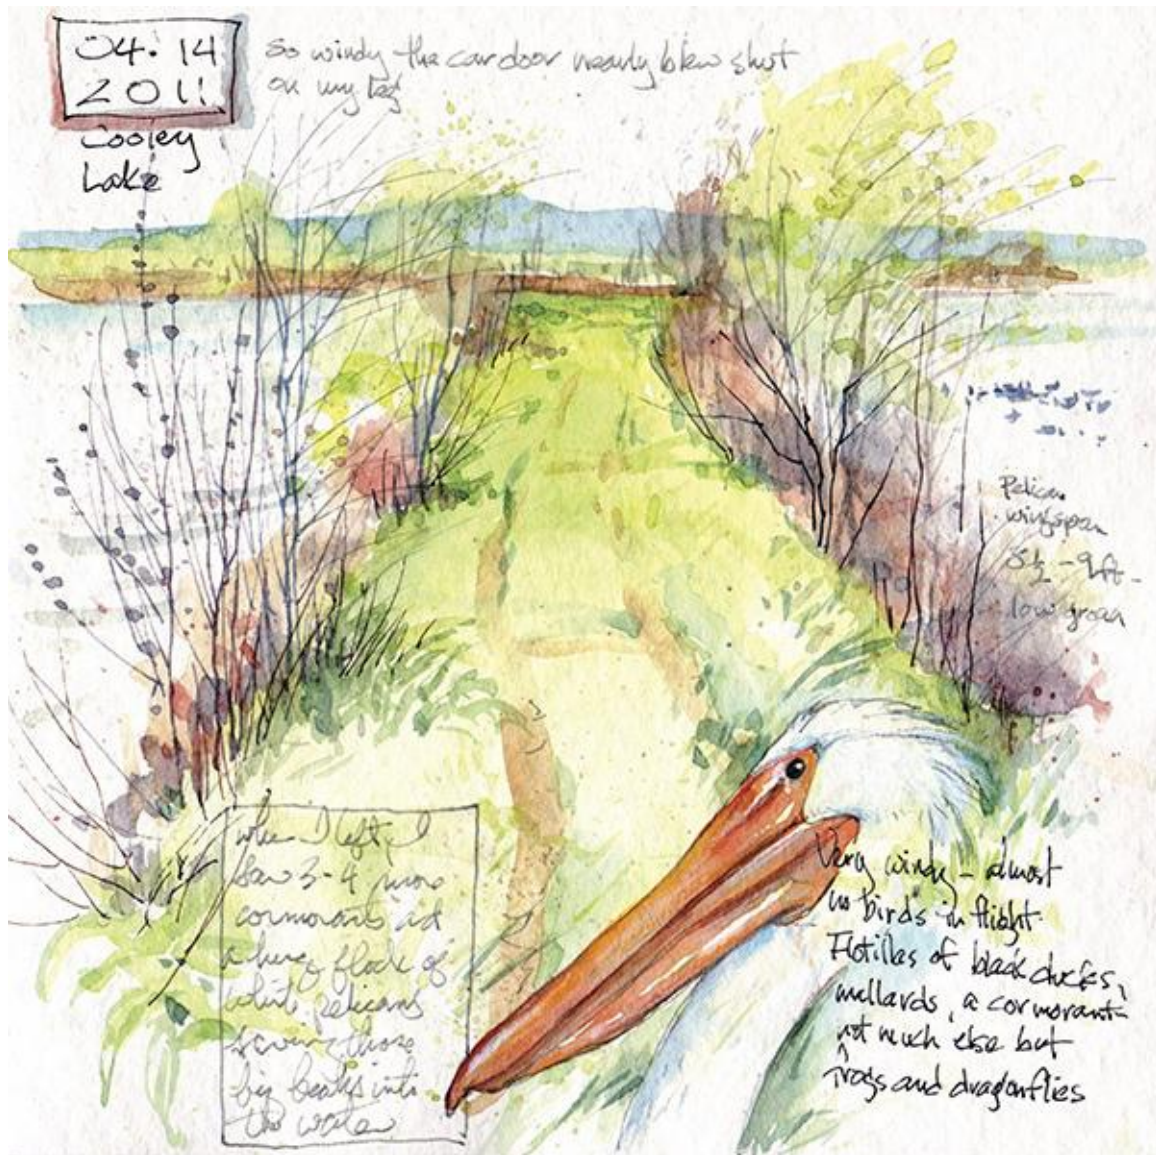 04.14
2011
Cooley
Lake
So windy the car door nearly blew shut
on my leg
Pelican
wingspan
8½ - 9ft -
low groan
when I left, I
saw 3-4 more
cormorants and
a huge flock of
white pelicans
those
big beaks into
the water
Very windy - almost
no birds in flight
Flotillas of black ducks,
mallards, a cormorant -
not much else but
frogs and dragonflies